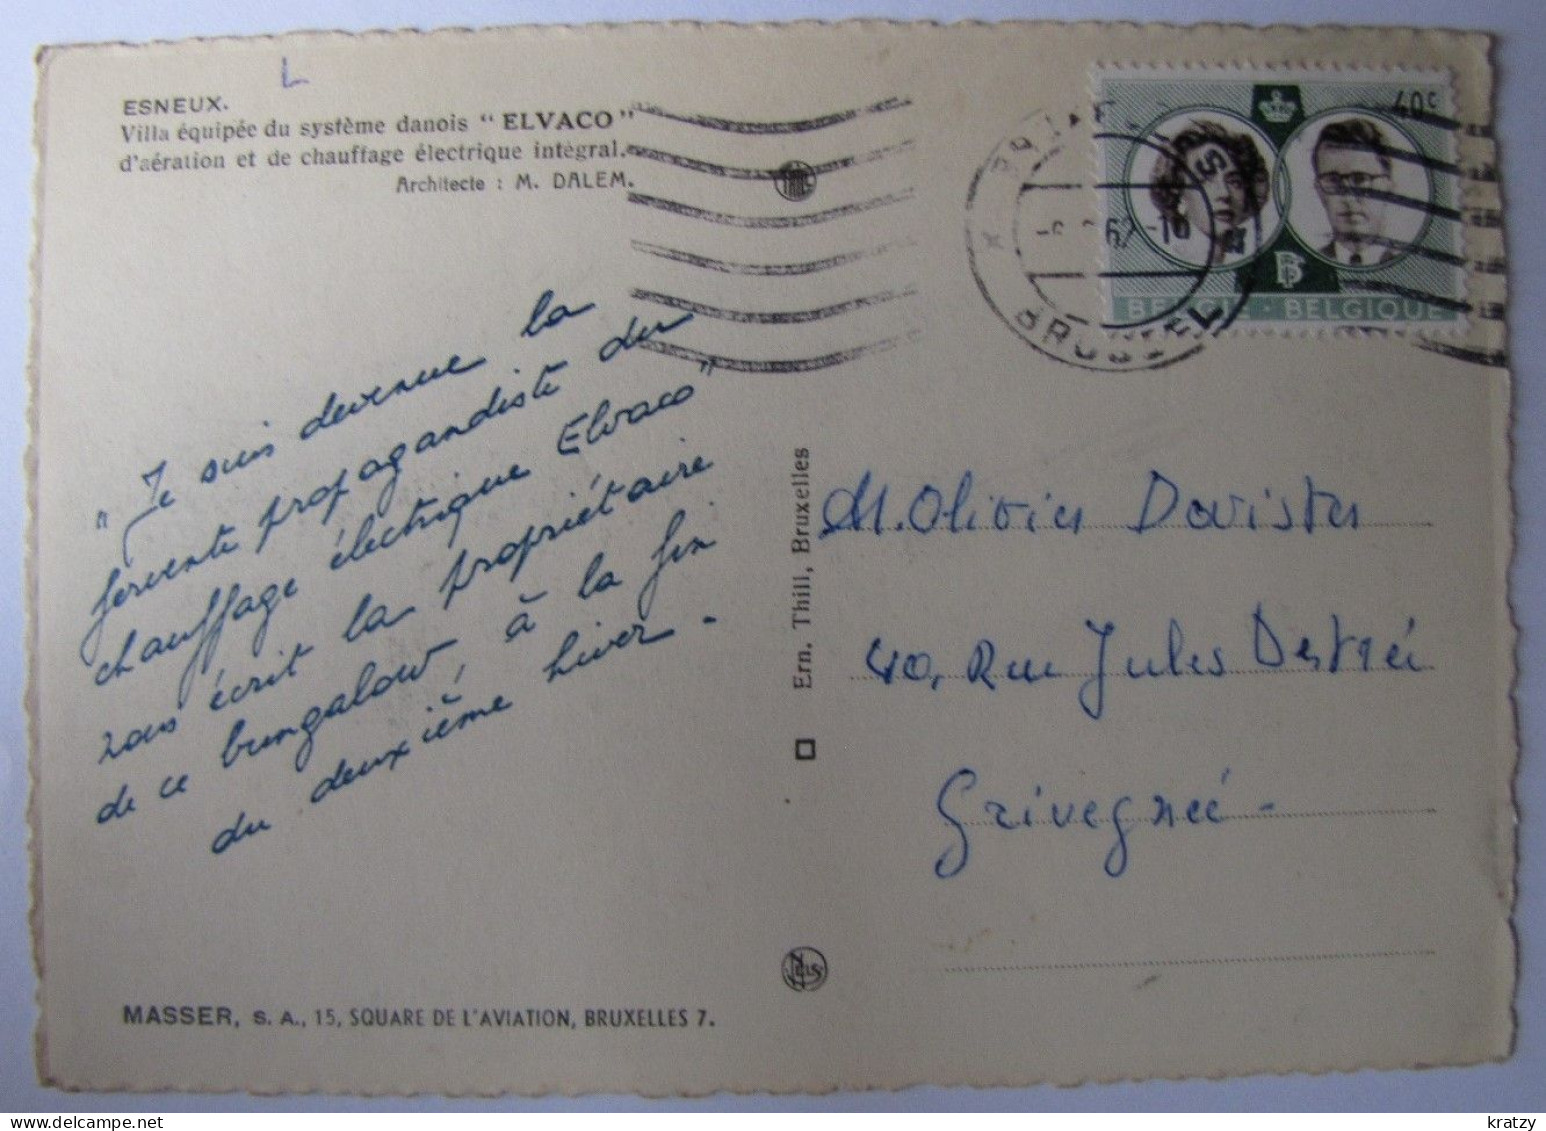 L
ESNEUX.
Villa équipée du système danois "ELVACO"
d'aération et de chauffage électrique intégral.
Architecte : M. DALEM.
"Je suis devenue la
fervente propagandiste du
chauffage électrique Elvaco"
vous écrit la propriétaire
de ce bungalow, à la fin
du deuxième hiver.
MASSER, S. A., 15, SQUARE DE L'AVIATION, BRUXELLES 7.
Ern. Thill, Bruxelles
NELS
40c
BELGIË - BELGIQUE
62
M. Olivier Davister
40, Rue Jules Destrée
Grivegnée -
kratzy